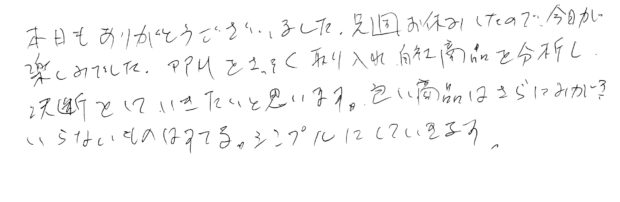 本日もありがとうございました。先回お休みしたので、今日が
楽しみでした。PPMをさっそく取り入れ自社商品を分析し
決断をしていきたいと思います。良い商品はさらにみがき
いらないものはすてる。シンプルにしていきます。